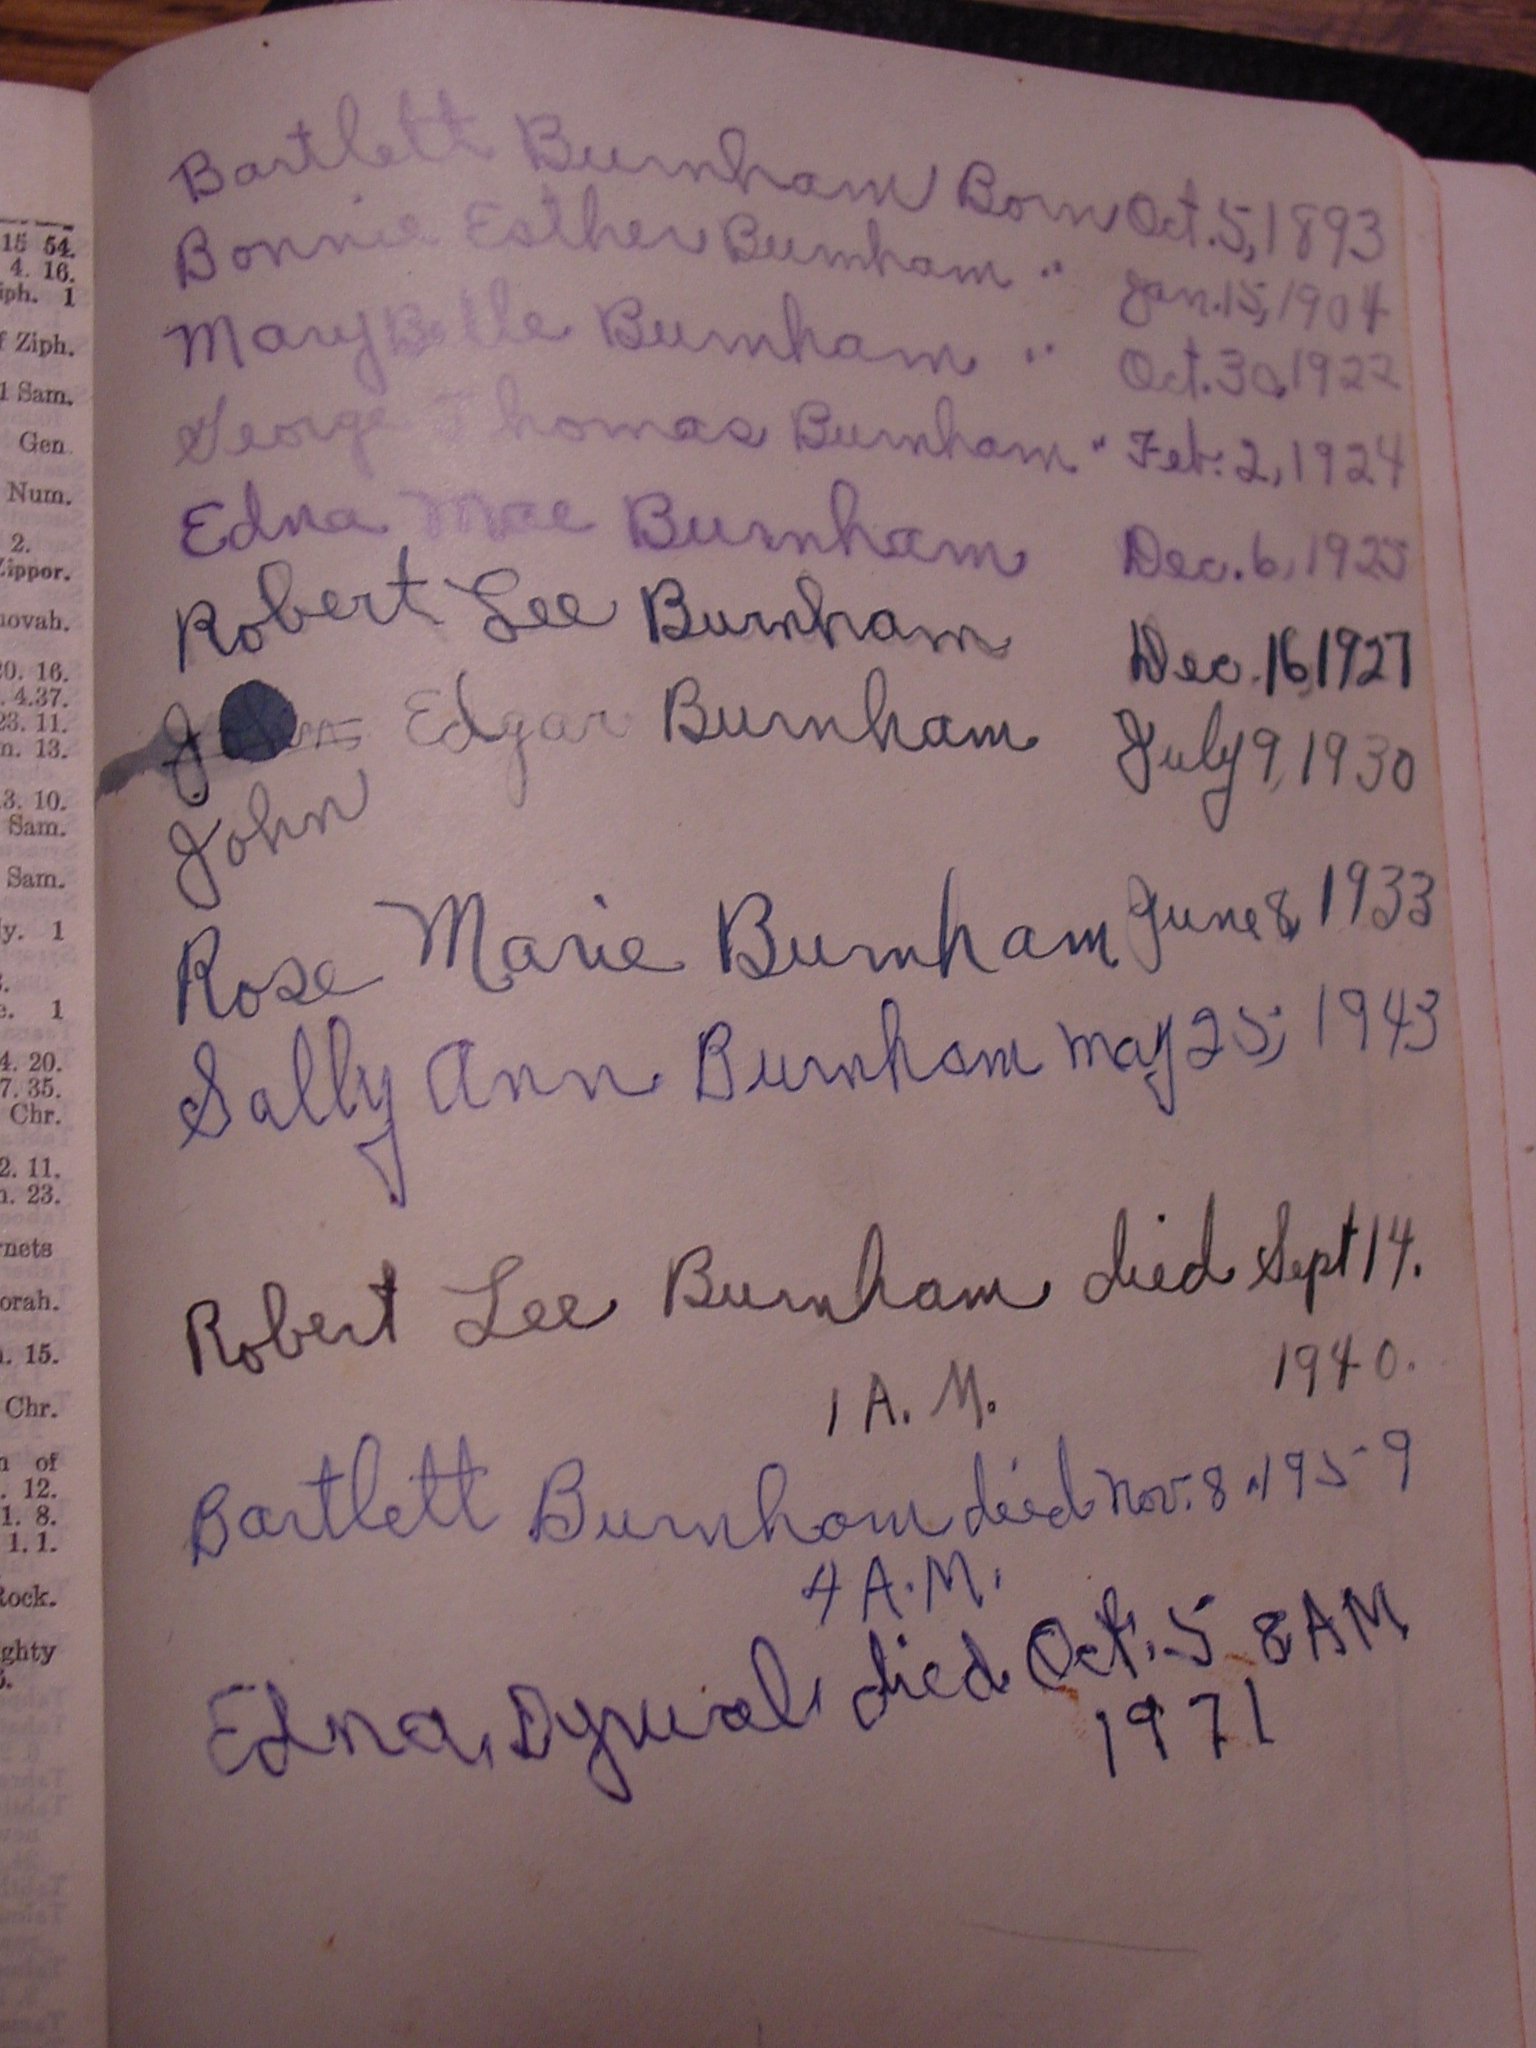 15 54.
4. 16.
iph. 1
f Ziph.
1 Sam.
Gen
Num.
2.
Zippor.
hovah.
20. 16.
. 4.37.
23. 11.
n. 13.
3. 10.
Sam.
Sam.
y. 1
e. 1
4. 20.
7. 35.
Chr.
2. 11.
n. 23.
rnets
orah.
1. 15.
Chr.
n of
. 12.
1. 8.
1. 1.
Rock.
ghty
Bartlett Burnham Born Oct. 5, 1893
Bonnie Esther Burnham " Jan. 15, 1904
Mary Belle Burnham " Oct. 30, 1922
George Thomas Burnham " Feb. 2, 1924
Edna Mae Burnham Dec. 6, 1925
Robert Lee Burnham Dec. 16, 1927
Edgar Burnham July 9, 1930
John
Rose Marie Burnham June 8, 1933
Sally Ann Burnham May 25, 1943
Robert Lee Burnham died Sept 14.
1 A. M. 1940.
Bartlett Burnham died Nov. 8, 1959
4 A.M.
Edna, died Oct. 5 8 AM
1971